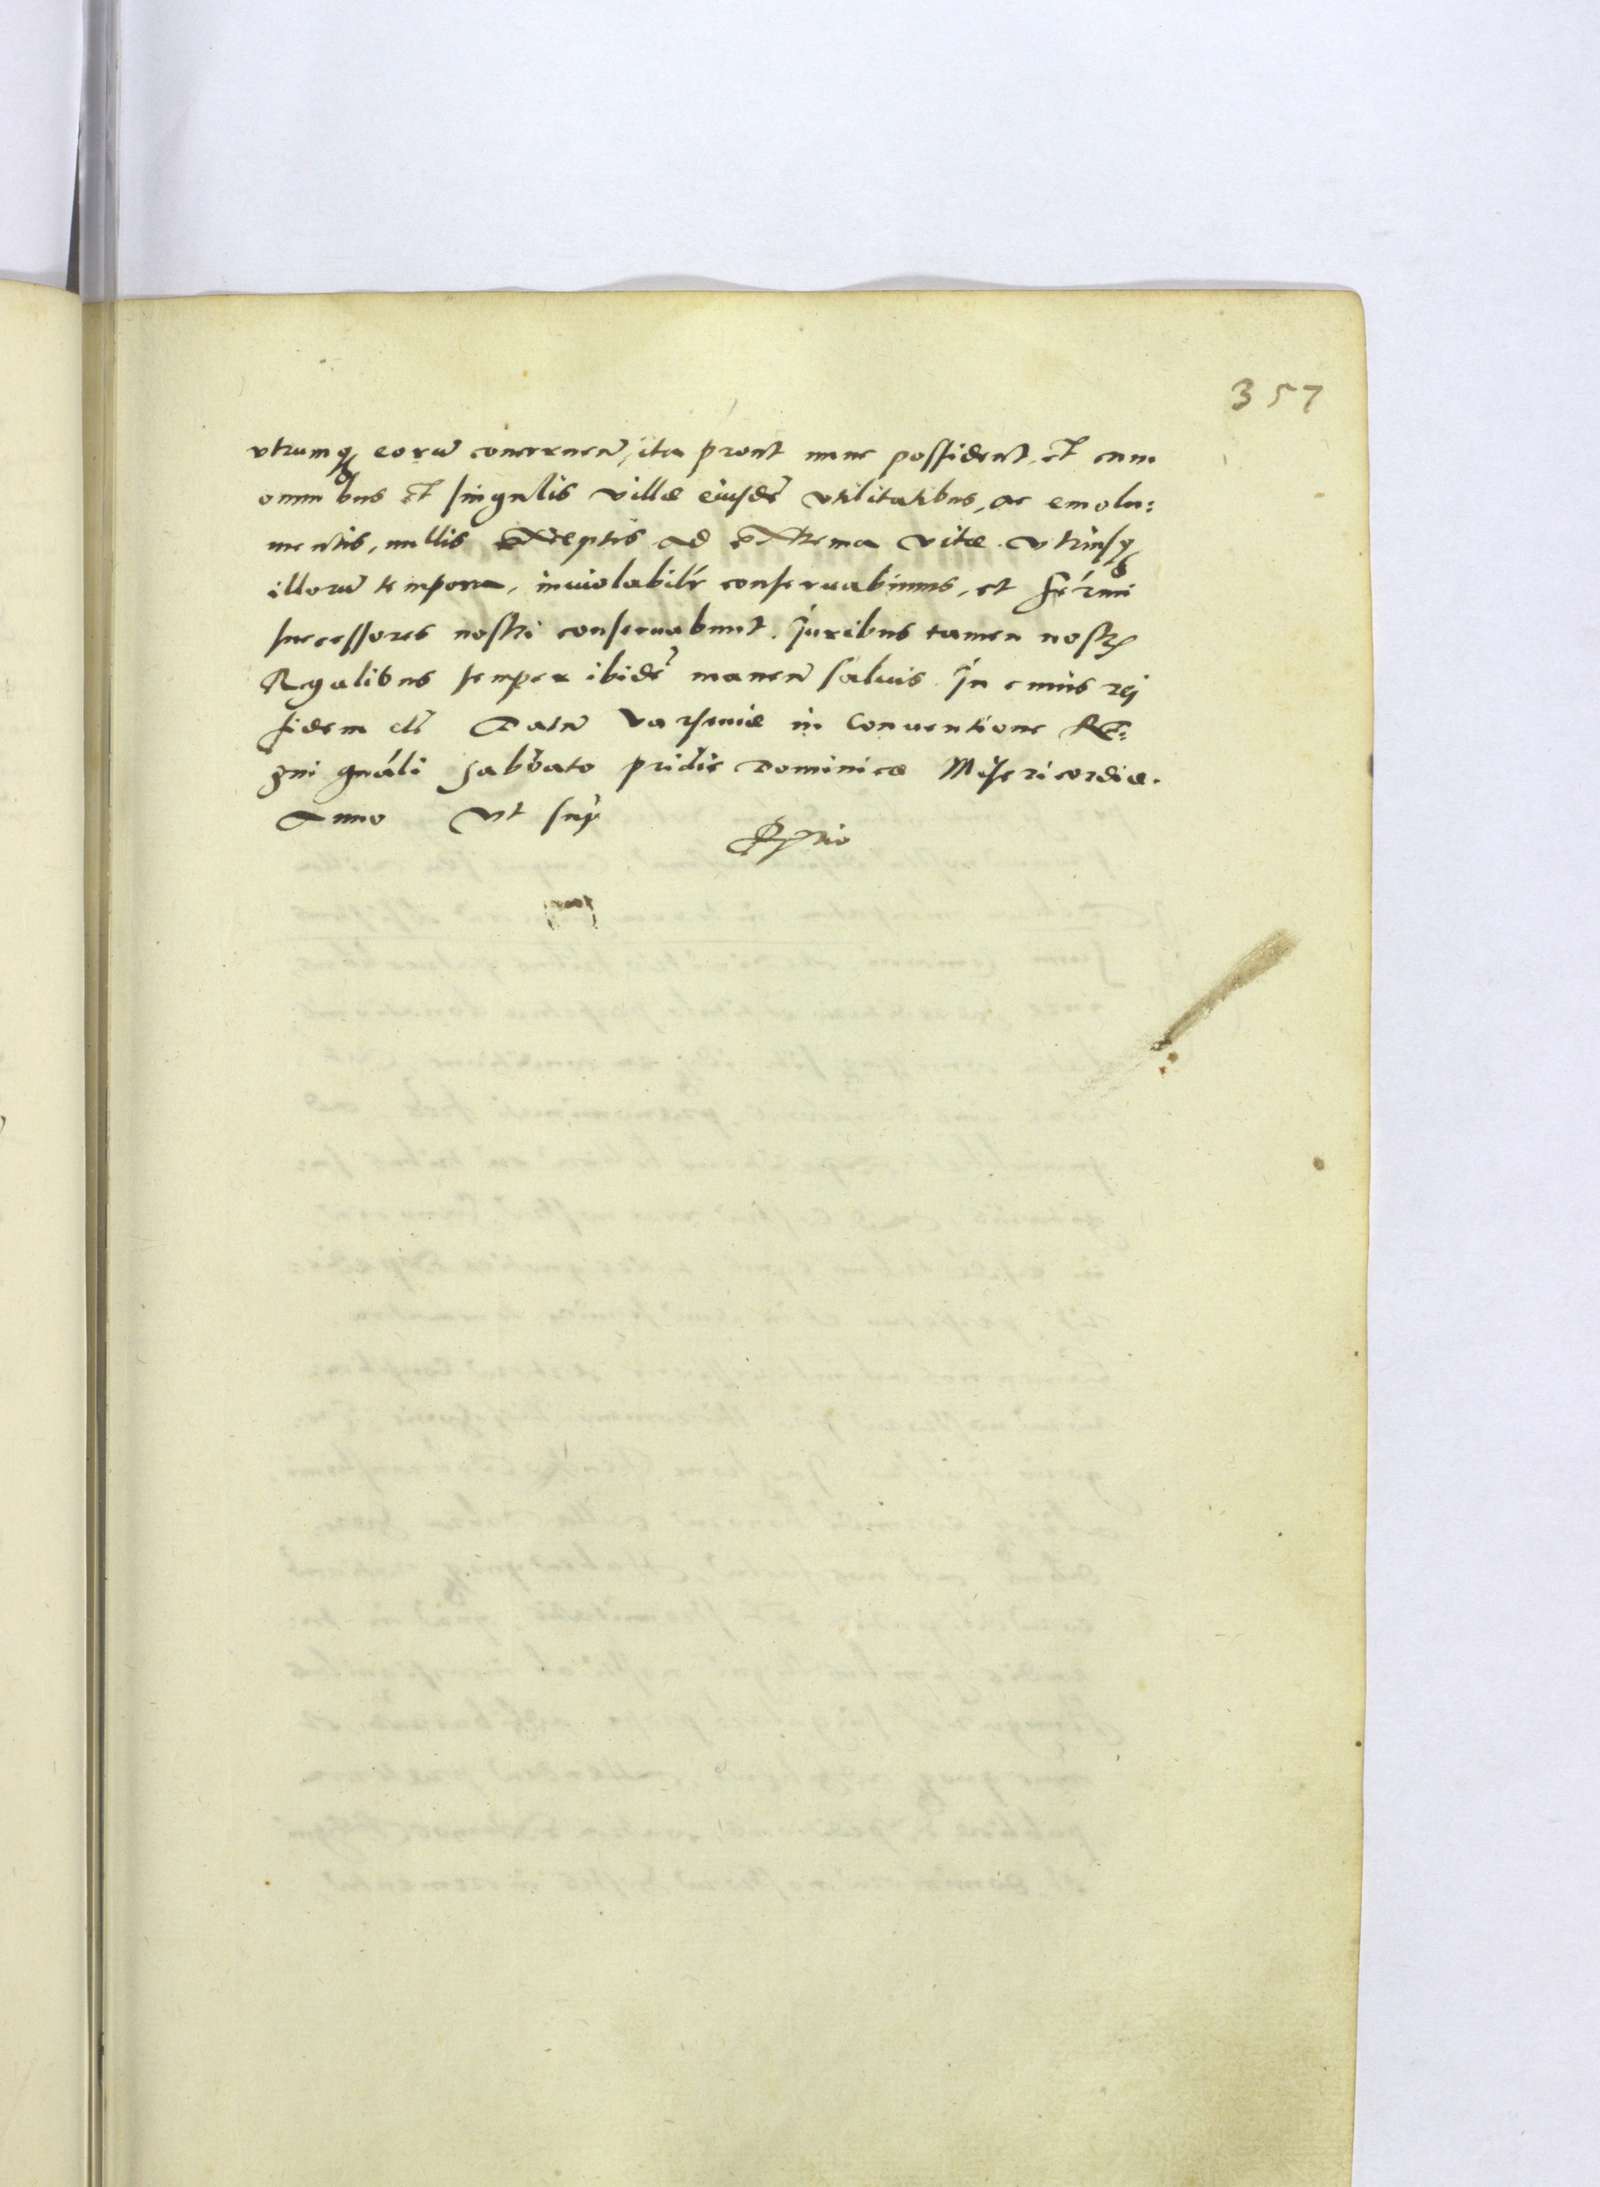 357
vtrumq₃ eorū concernen̄, ita prout nunc possident, et cum
omnibus et singulis villæ eiusdē vtilitatibus, ac emolu:
mentis, nullis exceptis ad extrema vitæ vtriusq₃
illorū tempora, inuiolabilr̄ conseruabimus, et Ser̄mi
successores nostri conseruabunt. Juribus tamen nostris
Regalibus semper ibidē manen̄ saluis. In cuius rei
fidem etc̄ Datū Varsouiæ in Conuentione Re:
gni gn̄ali Sabbato pridie Dominicæ Misericordiæ.
Anno vt sup̄